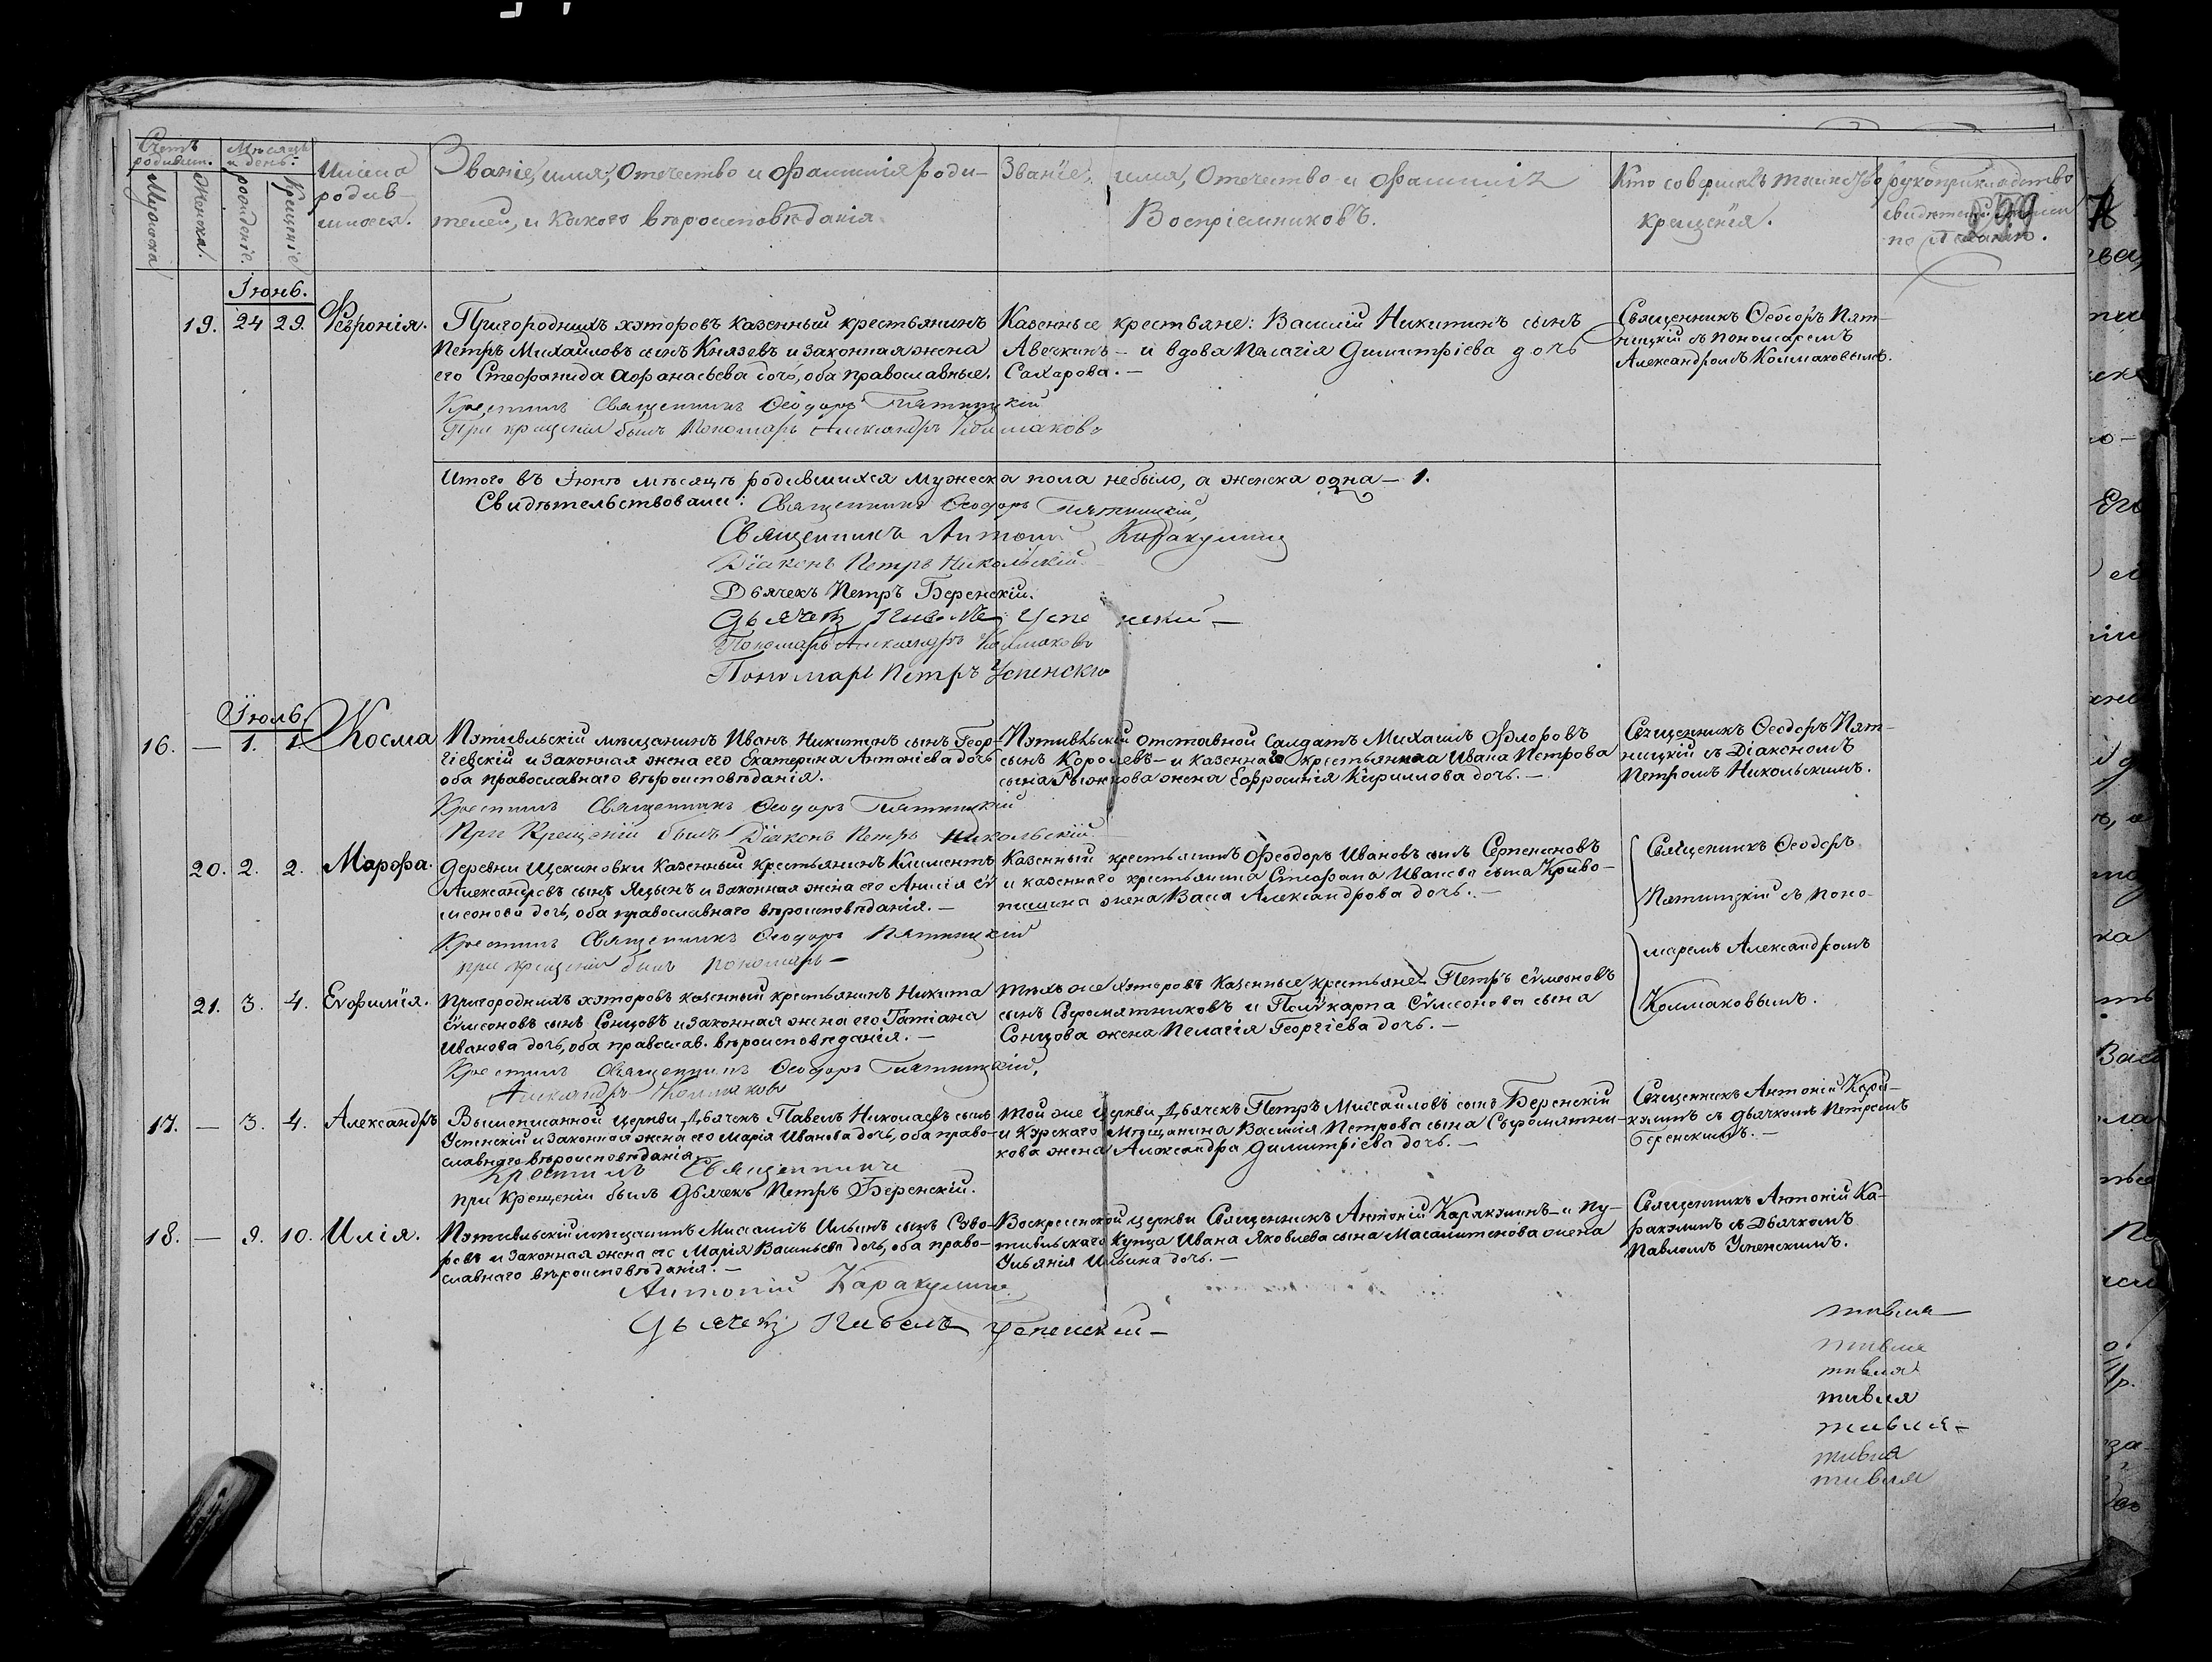 Счетъ родивш.
Мѣсяцъ и день.
Мужска
Женска.
рожденіе.
Крещеніе
Имена
родив-
шихся.
Званіе, имя, Отечество и Фамилія роди-
телей, и какого вѣроисповѣданія.
Званіе, имя, Отечество и Фамилія
Воспріемниковъ.
Кто совершалъ таинство
крещенія.
рукоприкладство
свидѣтелей записи
по желанію.
299
Іюнь.
19. 24 29. Феѵронія.
Пригородныхъ хуторовъ казенный крестьянинъ
Петръ Михайловъ сынъ Князевъ и законная жена
его Стефанида Афанасьева дочь, оба православные.
Казенные крестьяне: Василій Никитинъ сынъ
Аверкинъ - и вдова Пелагія Димитріева дочь
Сахарова. -
Священникъ Ѳеодоръ Пят-
ницкій съ пономаремъ
Александромъ Колмаковымъ.
Крестилъ Священникъ Ѳеодоръ Пятницкій
При крещеніи былъ Пономарь Александръ Колмаковъ
Итого въ Іюнѣ мѣсяцѣ родившихся мужеска пола небыло, а женска одна - 1.
Свидѣтельствовали: Священникъ Ѳеодоръ Пятницкій,
Священникъ Антоній Каракулинъ
Діаконъ Петръ Никольскій.
Дьячекъ Петръ Беренскій.
Дьячекъ Павелъ Успенскій -
Пономарь Александръ Колмаковъ
Пономарь Петръ Успенскій
Іюль.
16. - 1. 1. Косма
Путивльскій мѣщанинъ Иванъ Никитинъ сынъ Геор-
гіевскій и законная жена его Екатерина Антоніева дочь
оба православнаго вѣроисповѣданія.
Путивльскій отставной солдатъ Михаилъ Флоровъ
сынъ Королевъ - и казеннаго крестьянина Ивана Петрова
сына Рыжкова жена Евфросинія Кириллова дочь. -
Священникъ Ѳеодоръ Пят-
ницкій съ Діакономъ
Петромъ Никольскимъ.
Крестилъ Священникъ Ѳеодоръ Пятницкій
При Крещеніи былъ Діаконъ Петръ Никольскій.
20. 2. 2. Марфа.
Деревни Щекиновки казенный крестьянинъ Климентъ
Александровъ сынъ Яцынъ и законная жена его Анисія Сѵ
меонова дочь, оба православнаго вѣроисповѣданія. -
Казенный крестьянинъ Феодоръ Ивановъ сынъ Серпениновъ
и казеннаго крестьянина Стефана Иванова сына Криво-
шина жена Васса Александрова дочь. -
Священникъ Ѳеодоръ
Пятницкій съ поно-
маремъ Александромъ
Колмаковымъ.
Крестилъ Священникъ Ѳеодоръ Пятницкій
при крещеніи былъ пономарь -
21. 3. 4. Еѵфимія.
Пригородныхъ хуторовъ казенный крестьянинъ Никита
Сѵмеоновъ сынъ Сонцовъ и законная жена его Татіана
Иванова дочь, оба православ. вѣроисповѣданія. -
Тѣхъ же хуторовъ казенные крестьяне Петръ Сѵмеоновъ
сынъ Сыромятниковъ и Полѵкарпа Сѵмеонова сына
Сонцова жена Пелагія Георгіева дочь. -
Крестилъ Священникъ Ѳеодоръ Пятницкій,
Александръ Колмаковъ
17. - 3. 4. Александръ
Вышеписанной церкви Дьячекъ Павелъ Николаевъ сынъ
Успенскій и законная жена его Марія Иванова дочь, оба право-
славнаго вѣроисповѣданія
Той же церкви, Дьячекъ Петръ Михайловъ сынъ Беренскій
и Курскаго мѣщанина Василія Петрова сына Сыромятни-
кова жена Александра Димитріева дочь. -
Священникъ Антоній Кара-
кулинъ съ дьячкомъ Петромъ
Беренскимъ. -
Крестилъ Священникъ
при Крещеніи былъ Дьячекъ Петръ Беренскій.
18. - 9. 10. Илія.
Путивльскій мѣщанинъ Михаилъ Ильинъ сынъ Суво-
ровъ и законная жена его Марія Васильева дочь, оба право-
славнаго вѣроисповѣданія. -
Воскресенской церкви Священникъ Антоній Каракулинъ - и Пу-
тивльскаго купца Ивана Яковлева сына Масалитинова жена
Ульянія Ильина дочь. -
Священникъ Антоній Ка-
ракулинъ съ Дьячкомъ
Павломъ Успенскимъ.
Антоній Каракулинъ
Дьячекъ Павелъ Успенскій -
тивля -
тивля
тивля
тивля
тивля -
тивля
тивля